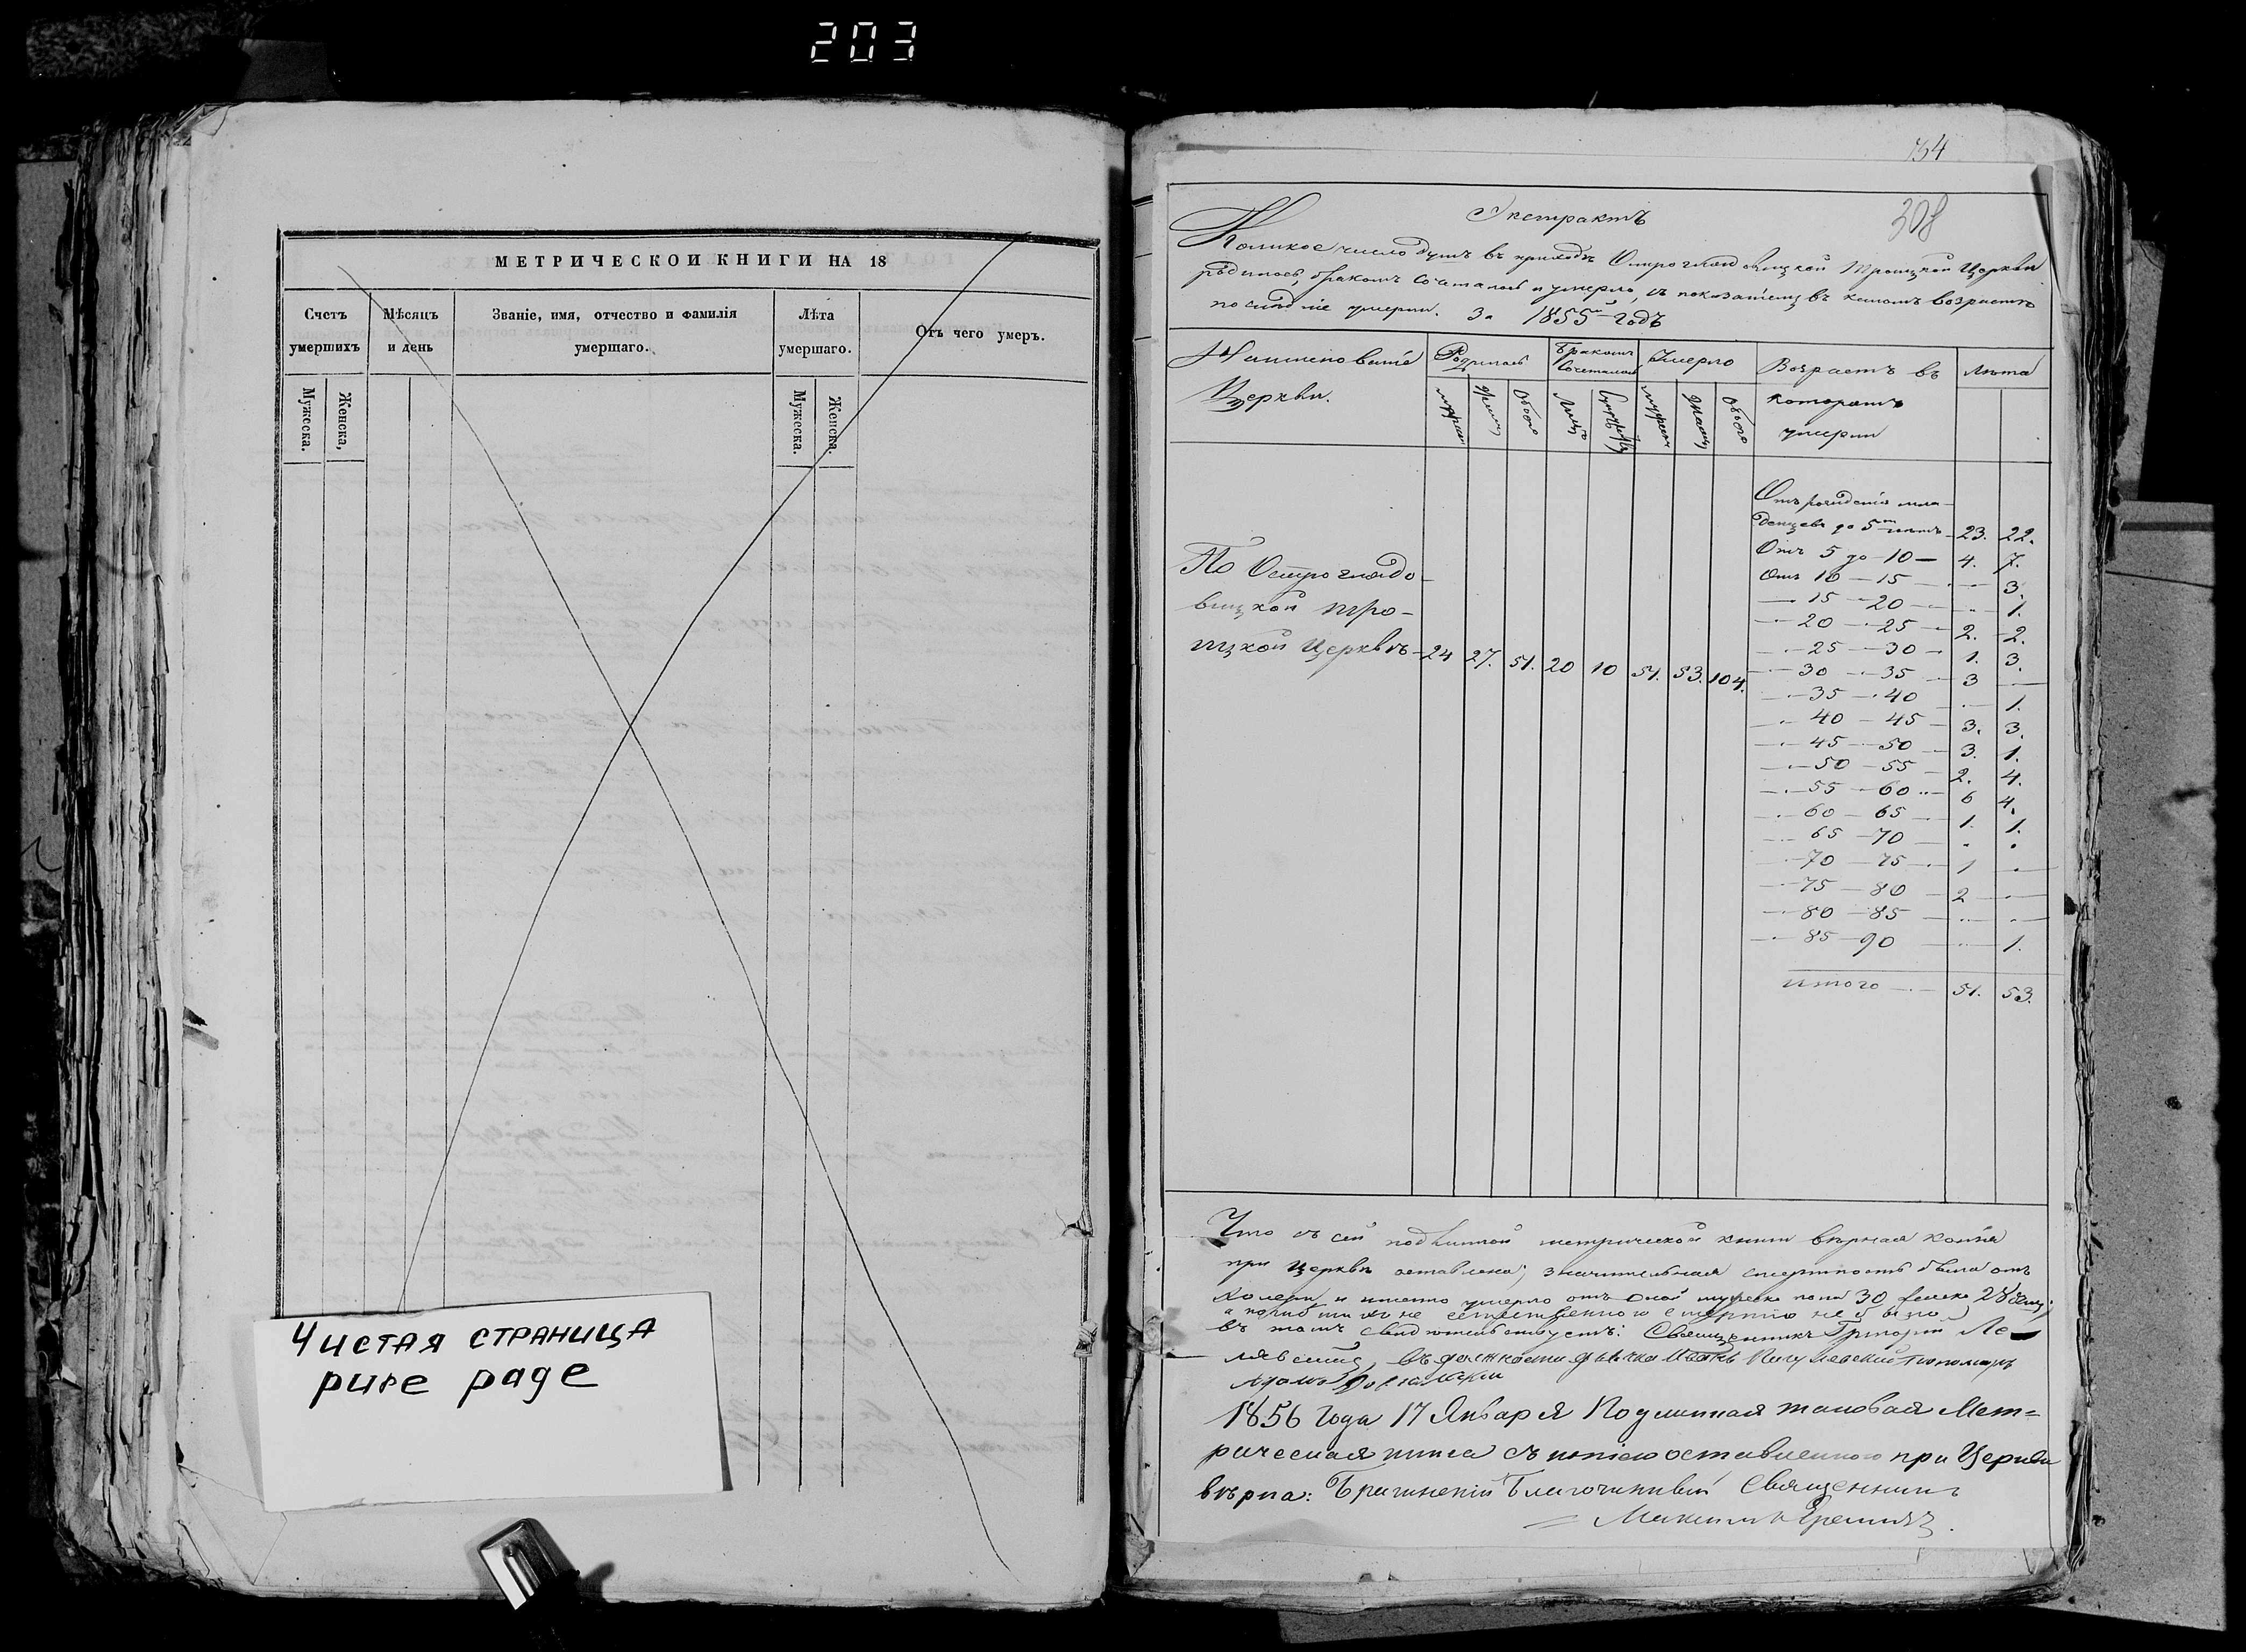 203
МЕТРИЧЕСКОЙ КНИГИ НА 18
Счетъ умершихъ
Мѣсяцъ и день
Званіе, имя, отчество и фамилія умершаго.
Лѣта умершаго.
Отъ чего умеръ.
Мужеска.
Женска,
Мужеска.
Женска.
Чистая страница
pure page
754
308
Экстрактъ
Коликое число душъ въ приходѣ Остроглядовицкой Троицкой Церкви
родилось, бракомъ сочеталось и умерло, съ показаніемъ въ какомъ возрастѣ
послѣдніе умерли. За 1855й годъ
Наименованіе
Церкви.
Родилось
Бракомъ
Сочеталось
Умерло
Возрастъ въ
которомъ
умерли
Лѣта
мужеск
женск
Обоего
Лицъ
мужеск
женск
Обоего
Отъ рожденія мла-
денцевъ до 5ти лѣтъ 23. 22.
Отъ 5 до 10 — 4. 7.
Отъ 10 — 15 — 3.
— 15 — 20 — 1.
— 20 — 25 — 2. 2.
— 25 — 30 — 1. 3.
— 30 — 35 — 3 —
— 35 — 40 — 1.
— 40 — 45 — 3. 3.
— 45 — 50 — 3. 1.
— 50 — 55 — 2. 4.
— 55 — 60 — 6 4.
— 60 — 65 — 1. 1.
— 65 — 70 — . .
— 70 — 75 — 1 —
— 75 — 80 — 2 —
— 80 — 85 — —
— 85 — 90 — 1.
итого — 51. 53.
По Остроглядо-
вицкой Тро-
ицкой Церквѣ — 24 27. 51. 20 10 51. 53. 104.
Что съ сей подлинной метрической книги вѣрная копія
при Церквѣ оставлена; значительная смертность была отъ
холеры и именно умерло отъ оной мужеска пола 30 женска 28
а погибшихъ не естественною смертію не было
въ томъ свидетельствуетъ: Священникъ Григорій
въ должности дьячка Пономарь
Адамъ
1856 Года 17 Января Подлинная таковая Мет-
рическая книга съ копіею оставленною при Церкви
вѣрна: Брагинскій Благочинный Священникъ
Максимъ Еремичъ.